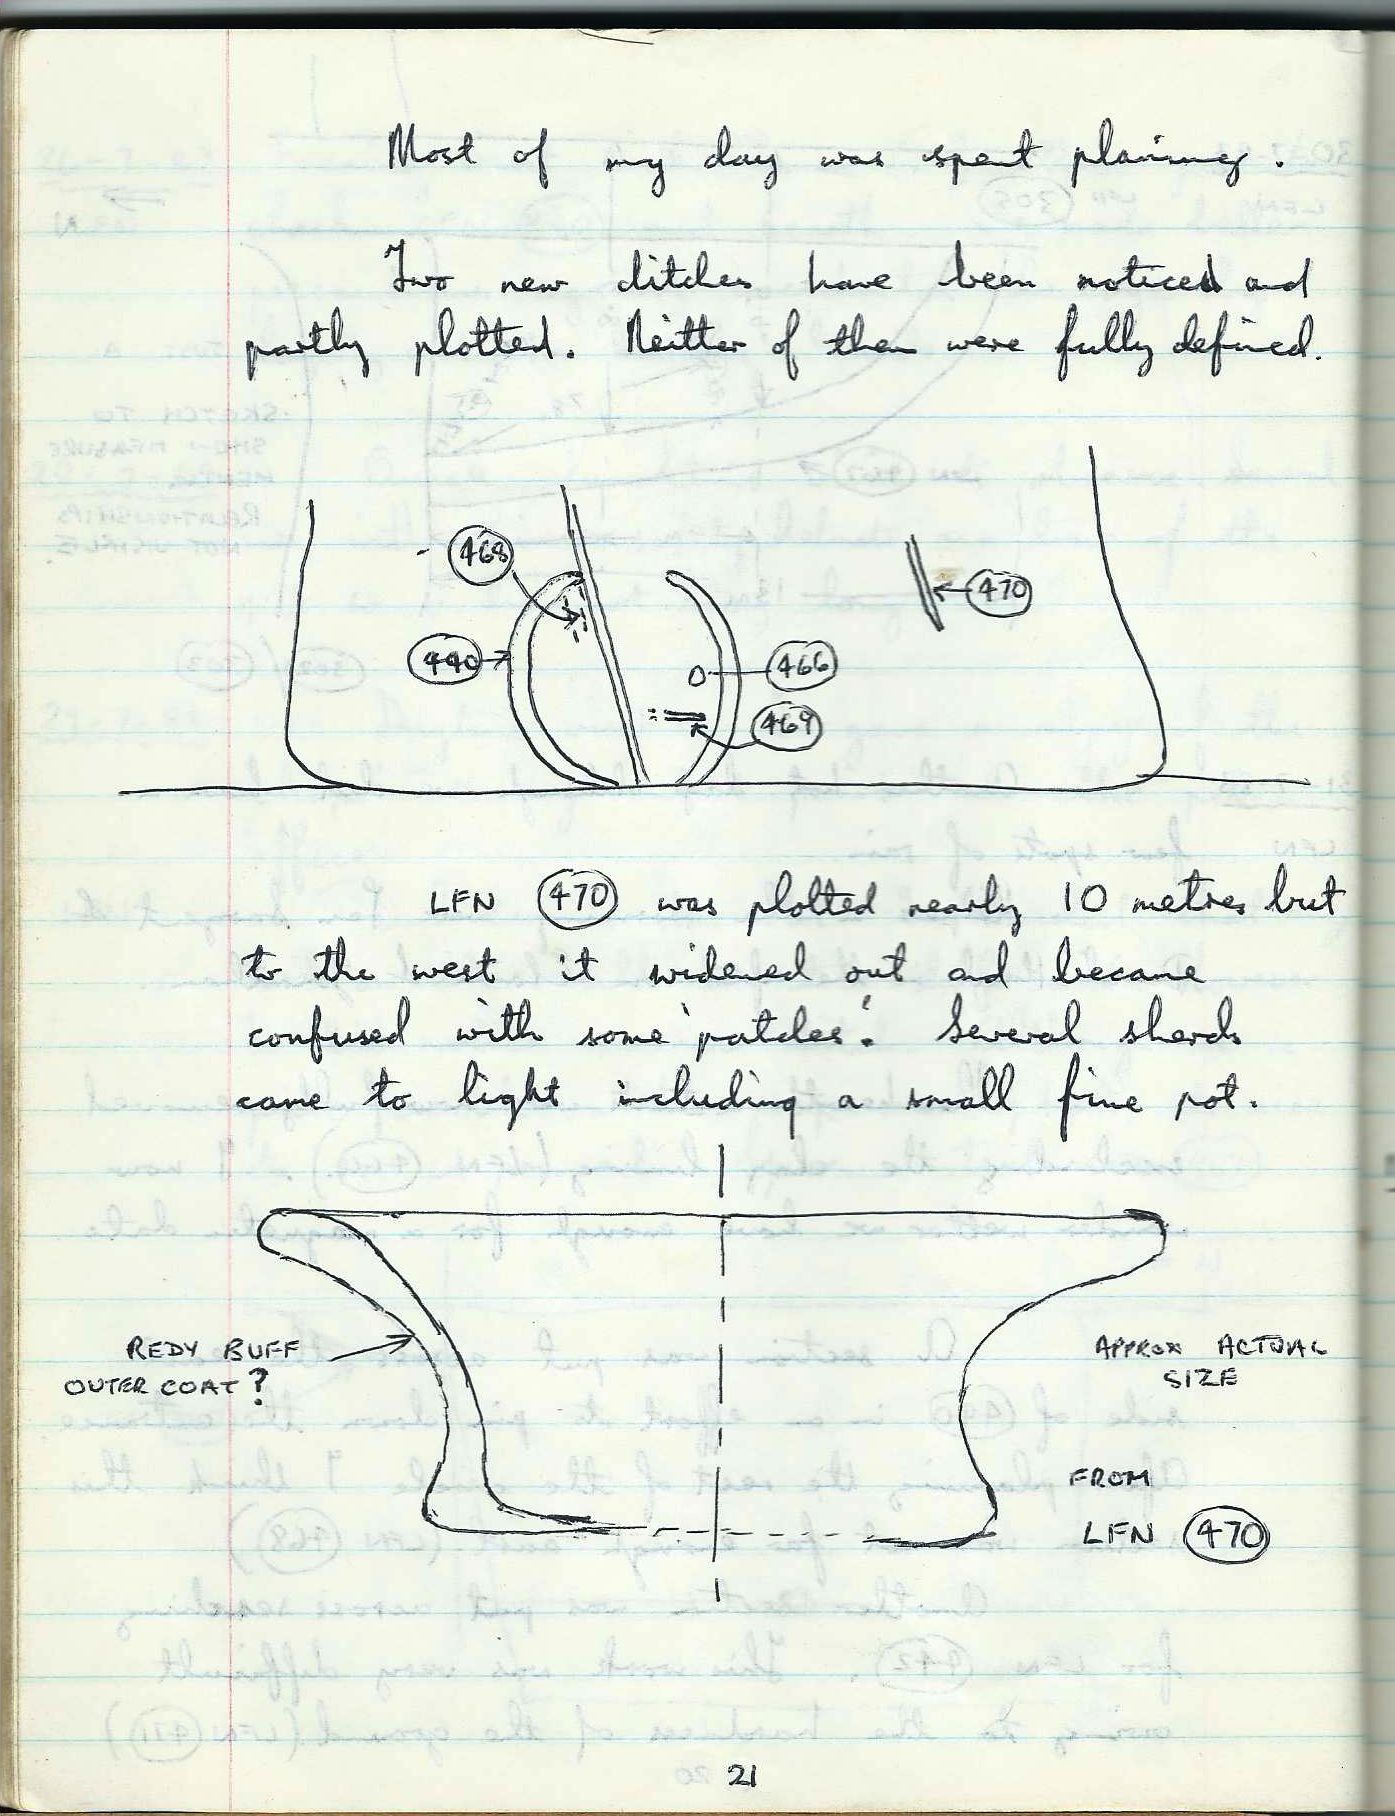 Most of my day was spent planning.
Two new ditches have been noticed and
partly plotted. Neither of them were fully defined.
468
470
440
466
469
LFN 470 was plotted nearly 10 metres but
to the west it widened out and became
confused with some 'patches'. Several sherds
came to light including a small fine pot.
REDY BUFF
OUTER COAT?
APPROX ACTUAL
SIZE
FROM
LFN 470
21